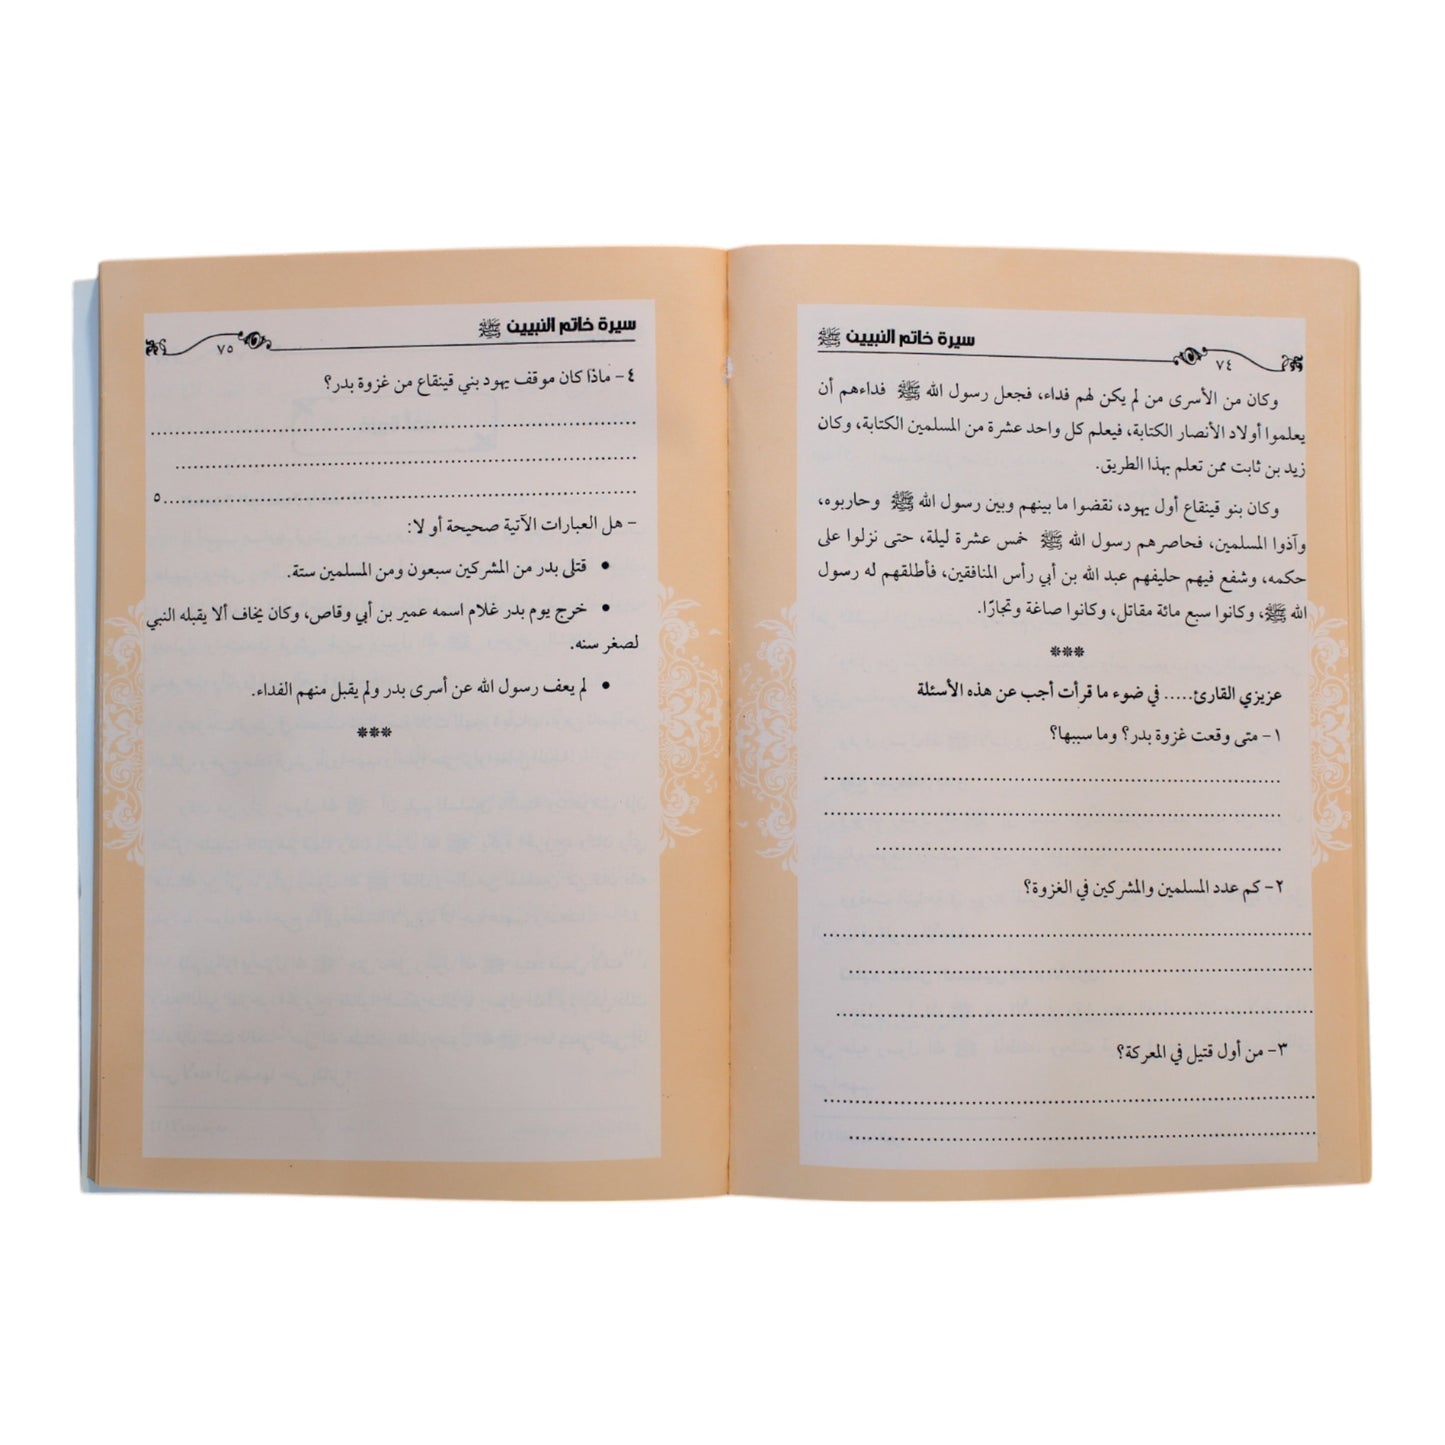 سيرة خاتم النبيين ﷺ
٧٤
وكان من الأسرى من لم يكن لهم فداء، فجعل رسول الله ﷺ فداءهم أن
يعلموا أولاد الأنصار الكتابة، فيعلم كل واحد عشرة من المسلمين الكتابة، وكان
زيد بن ثابت ممن تعلم بهذا الطريق.
وكان بنو قينقاع أول يهود، نقضوا ما بينهم وبين رسول الله ﷺ وحاربوه،
وآذوا المسلمين، فحاصرهم رسول الله ﷺ خمس عشرة ليلة، حتى نزلوا على
حكمه، وشفع فيهم حليفهم عبد الله بن أبي رأس المنافقين، فأطلقهم له رسول
الله ﷺ، وكانوا سبع مائة مقاتل، وكانوا صاغة وتجارًا.
***
عزيزي القارئ..... في ضوء ما قرأت أجب عن هذه الأسئلة
١- متى وقعت غزوة بدر؟ وما سببها؟
٢- كم عدد المسلمين والمشركين في الغزوة؟
٣- من أول قتيل في المعركة؟
سيرة خاتم النبيين ﷺ
٧٥
٤- ماذا كان موقف يهود بني قينقاع من غزوة بدر؟
٥
- هل العبارات الآتية صحيحة أو لا:
• قتلى بدر من المشركين سبعون ومن المسلمين ستة.
• خرج يوم بدر غلام اسمه عمير بن أبي وقاص، وكان يخاف ألا يقبله النبي
لصغر سنه.
• لم يعف رسول الله عن أسرى بدر ولم يقبل منهم الفداء.
***